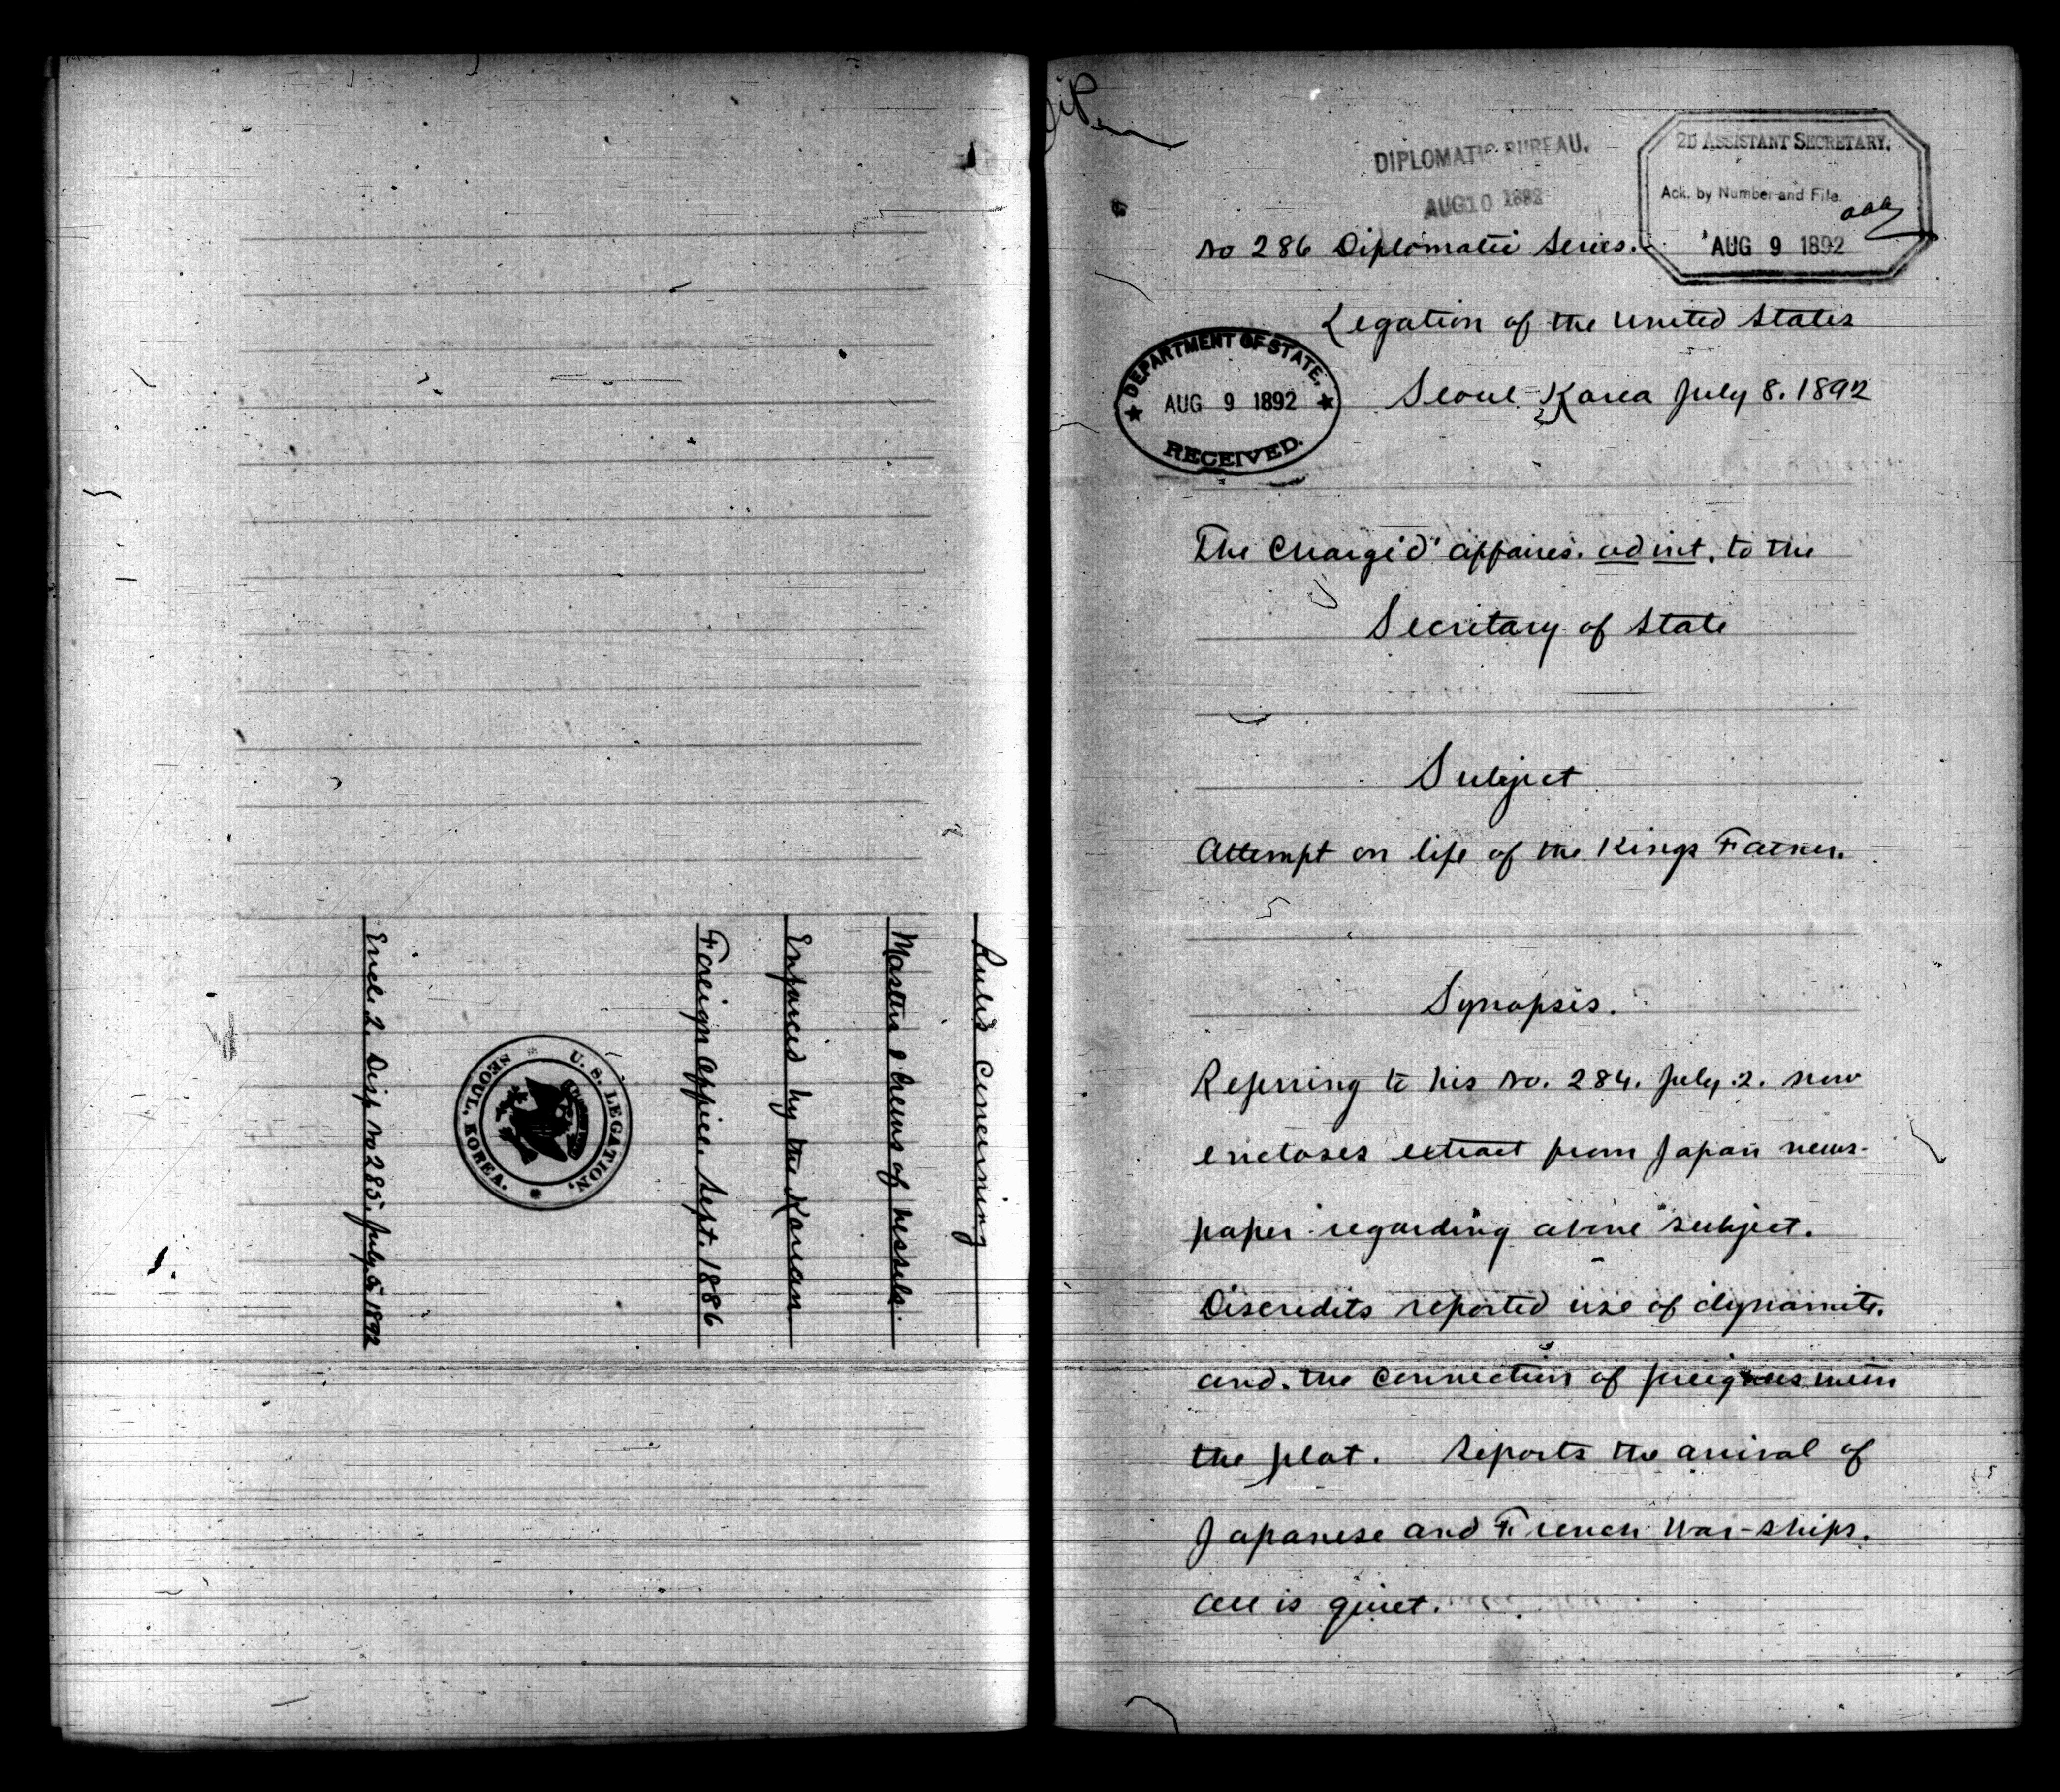 Rules Concerning
Masters & Crews of Vessels.
Enforced by the Korean
Foreign Office. Sept. 1886
U. S. LEGATION,
SEOUL, KOREA.
Encl. 2. Disp. No 285. July 5 1892
DIPLOMATIC BUREAU.
AUG 10 1892
2D ASSISTANT SECRETARY.
Ack. by Number and File.
AUG 9 1892
No 286 Diplomatic Series.
Legation of the United States
DEPARTMENT OF STATE,
AUG 9 1892
RECEIVED.
Seoul Korea July 8. 1892
The Chargé d' affaires. ad int. to the
Secretary of State
Subject
Attempt on life of the Kings Father.
Synopsis.
Referring to his No. 284. July 2. now
encloses extract from Japan news-
paper regarding above subject.
Discredits reported use of dynamite.
and the connection of foreigners with
the plot. Reports the arrival of
Japanese and French War-ships.
All is quiet.